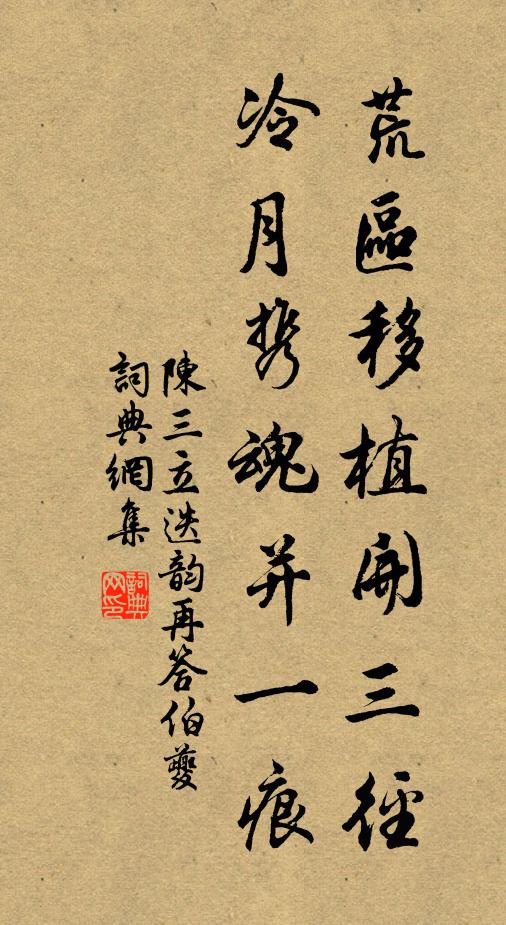 荒區移植開三徑
冷月携魂并一痕
陳三立迭韵再答伯夔
詞典網集
詞典網印